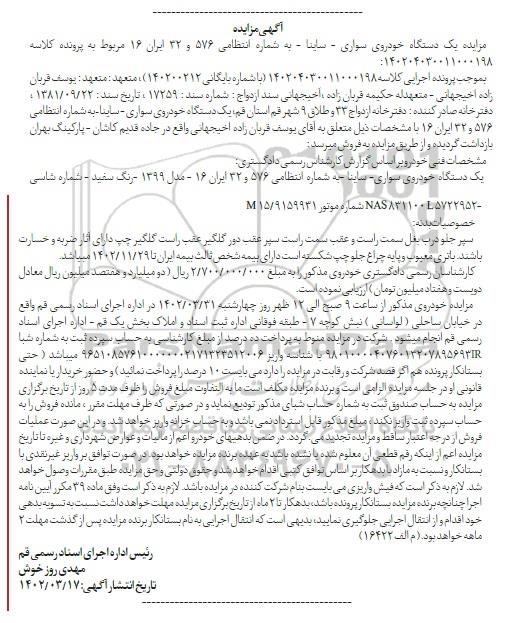 آگهی مزایده
مزایده یک دستگاه خودروی سواری - ساینا - به شماره انتظامی ۵۷۶ و ۳۲ ایران ۱۶ مربوط به پرونده کلاسه
۱۴۰۲۰۴۰۳۰۰۱۱۰۰۰۱۹۸:
بموجب پرونده اجرایی کلاسه ۱۴۰۲۰۴۰۳۰۰۱۱۰۰۰۱۹۸ (باشماره بایگانی ۱۴۰۲۰۰۲۱۲)، متعهد: متعهد: یوسف قربان
زاده اخیجهانی - متعهدله حکیمه قربان زاده ،أخیجهانی سند ازدواج : شماره سند : ۱۷۲۵۹ ، تاریخ سند : ۱۳۸۱/۰۹/۲۲ ،
دفترخانه صادر کننده : دفترخانه ازدواج ۳۳ و طلاق ۹ شهر قم استان قم؛ یک دستگاه خودروی سواری -ساینا-به شماره انتظامی
۵۷۶ و ۳۲ ایران ۱۶ با مشخصات ذیل متعلق به آقای یوسف قربان زاده اخیجهانی واقع در جاده قدیم کاشان - پارکینگ بهران
بازداشت گردیده و از طریق مزایده به فروش میرسد:
مشخصات فنی خودرو بر اساس گزارش کارشناس رسمی دادگستری:
یک دستگاه خودروی سواری- ساینا -به شماره انتظامی ۵۷۶ و ۳۲ ایران ۱۶ - مدل ۱۳۹۹ -رنگ سفید - شماره شاسی
-NAS۸۳۱۱۰۰L۵۷۲۲۹۵۲ شماره موتور M۱۵/۹۱۵۹۹۳۱
خصوصیات بدنه:
سپر جلو درب بغل سمت راست و عقب سمت راست سپر عقب دور گلگیر عقب راست گلگیر چپ دارای آثار ضربه و خسارت
باشند. باتری معیوب و پایه چراغ جلو چپ شکسته است دارای بیمه شخص ثالث بیمه ایران تا ۱۴۰۲/۱۱/۲۹ میباشد.
کارشناسان رسمی دادگستری خودروی مذکور را به مبلغ ۲/۷۰۰/۰۰۰/۰۰۰ ریال ( دو میلیارد و هفتصد میلیون ریال معادل
دویست و هفتاد میلیون تومان) ارزیابی نموده است.
مزایده خودروی مذکور از ساعت ۹ صبح الی ۱۲ ظهر روز چهارشنبه ۱۴۰۲/۰۳/۳۱ در اداره اجرای اسناد رسمی قم واقع
در خیابان ساحلی ( لواسانی ) نبش کوچه ۷ - طبقه فوقانی اداره ثبت اسناد و املاک بخش یک قم - اداره اجرای اسناد
رسمی قم انجام میشود . شرکت در مزایده منوط به پرداخت ده درصد از مبلغ کارشناسی به حساب سپرده ثبت به شماره شبا
میباشد ( حتی
بستانکار پرونده هم اگر قصد شرکت و رقابت در مزایده را دارد می بایست ۱۰ درصد را پرداخت نمائید) و حضور خریدار یا نماینده
قانونی او در جلسه مزایده الزامی است و برنده مزایده مکلف است ما به التفاوت مبلغ فروش را ظرف مدت ۵ روز از تاریخ برگزاری
مزایده به حساب صندوق ثبت به شماره حساب شبای مذکور تودیع نماید و در صورتی که ظرف مهلت مقرر ، مانده فروش را به
حساب سپرده ثبت واریز نکند، مبلغ مذکور قابل استرداد نمی باشد و به حساب خزانه واریز خواهد شد. و در این صورت عملیات
فروش از درجه اعتبار ساقط و مزایده تجدید می گردد. در ضمن بدهیهای خودرو اعم از مالیات و عوارض شهرداری و غیره تا تاریخ
مزایده اعم از اینکه رقم قطعی آن معلوم شده یا نشده باشد به عهده برنده مزایده خواهد بود. در صورت توافق بر واریز غیرنقدی با
بستانکار و نسبت به مازاد با بدهکار بر اساس توافق کتبی اقدام خواهد شد و حقوق دولتی و حق مزایده طبق مقررات وصول خواهد
شد. لازم به ذکر است که فیش واریزی می بایست بنام شرکت کننده در مزایده باشد. لازم به ذکر است وفق ماده ۳۹ مکرر آیین نامه
اجرا چنانچه برنده مزایده بستانکار پرونده باشد، بدهکار تا ۲ ماه از تاریخ برگزاری مزایده مهلت خواهد داشت نسبت به تسویه بدهی
خود اقدام و از انتقال اجرایی جلوگیری نمایید، بدیهی است که انتقال اجرایی به نام بستانکار برنده مزایده پس از گذشت مهلت ۲
ماهه خواهد بود. (م الف ۱۶۴۲۲)
رئیس اداره اجرای اسناد رسمی قم
مهدی روز خوش
تاریخ انتشار آگهی: ۱۴۰۲/۰۳/۱۷